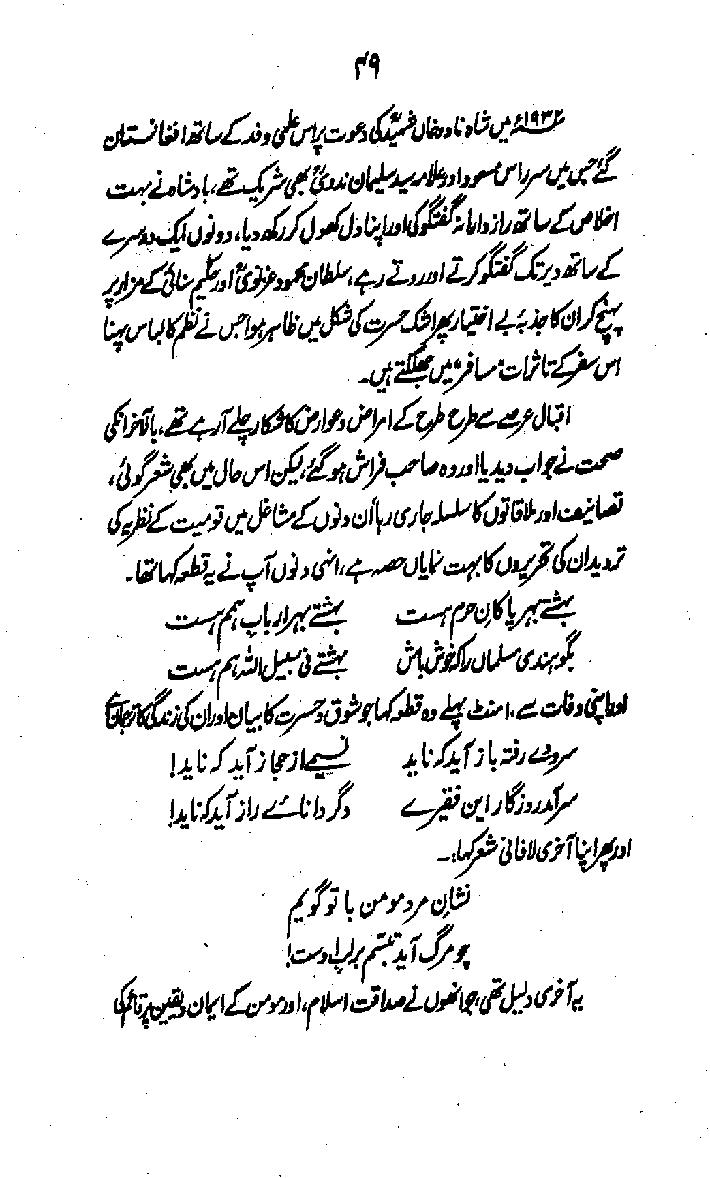 ۴۹
۱۹۳۲ء میں شاہ نادر خاں شہیدؒ کی دعوت پر اس علمی وفد کے ساتھ افغانستان
گئے جس میں سر راس مسعود اور علامہ سید سلیمان ندویؒ بھی شریک تھے، بادشاہ نے بہت
اخلاص کے ساتھ رازدارانہ گفتگو کی اور اپنا دل کھول کر رکھ دیا، دونوں ایک دوسرے
کے ساتھ دیر تک گفتگو کرتے اور روتے رہے، سلطان محمود غزنویؒ اور حکیم سنائیؒ کے مزار پر
پہنچ کر ان کا جذبۂ بے اختیار پھر اشک حسرت کی شکل میں ظاہر ہوا جس نے نظم کا لباس پہنا
اس سفر کے تاثرات "مسافر" میں جھلکتے ہیں۔
اقبال عرصے سے طرح طرح کے امراض و عوارض کا شکار چلے آرہے تھے، بالآخر انکی
صحت نے جواب دیدیا اور وہ صاحب فراش ہو گئے، لیکن اس حال میں بھی شعر گوئی،
تصانیف اور ملاقاتوں کا سلسلہ جاری رہا ان دنوں کے مشاغل میں قومیت کے نظریہ کی
تردید ان کی تحریروں کا بہت نمایاں حصہ ہے، انہی دنوں آپ نے یہ قطعہ کہا تھا۔
بہشتے بہر پاکانِ حرم ہست بہشتے بہر ارباب ہمم ہست
بگو ہندی مسلماں را کہ خوش باش بہشتے فی سبیل اللہ ہم ہست
اور اپنی وفات سے ۱۰ منٹ پہلے وہ قطعہ کہا جو شوق و حسرت کا بیان اور ان کی زندگی کا ترجمان ہے
سرودے رفتہ باز آید کہ ناید نسیمے از حجاز آید کہ ناید!
سرآمد روزگار این فقیرے دگر دانائے راز آید کہ ناید!
اور پھر اپنا آخری لافانی شعر کہا:۔
نشانِ مرد مومن با تو گویم
چو مرگ آید تبسّم بر لبِ اوست!
یہ آخری دلیل تھی، جو انھوں نے صداقت اسلام، اور مومن کے ایمان و یقین پر قائم کی